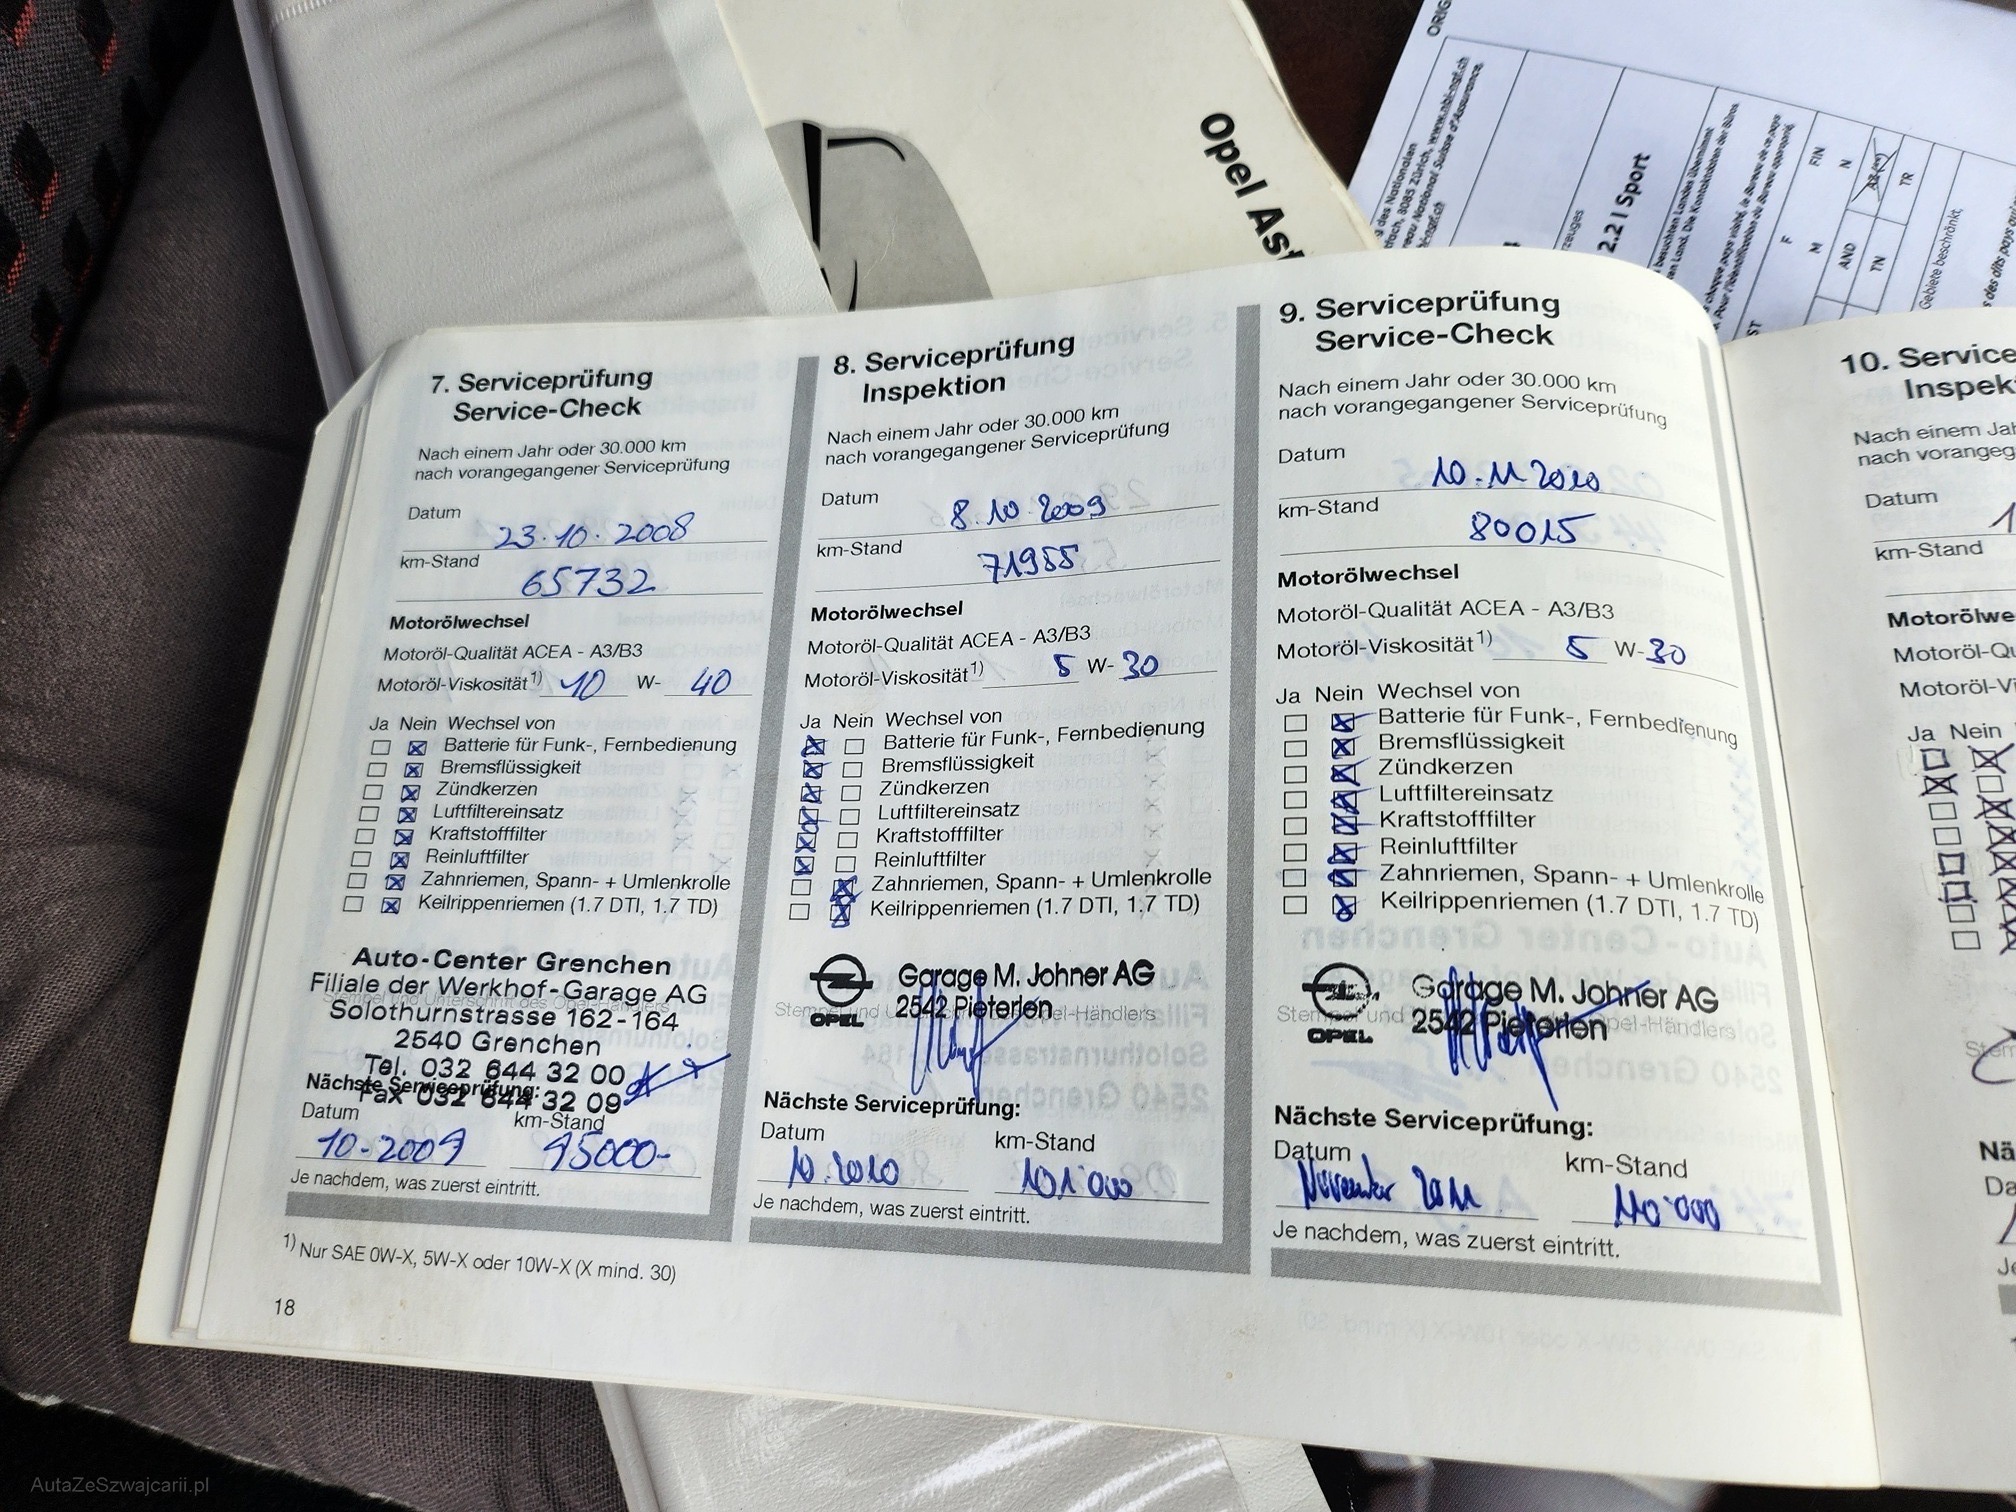 ORIG
2.2 l Sport
FIN
F
N
M
AND
TR
TN
Gebiete beschränkt,
Opel Ast
7. Serviceprüfung
Service-Check
Nach einem Jahr oder 30.000 km
nach vorangegangener Serviceprüfung
Datum
23.10.2008
km-Stand
65732
Motorölwechsel
Motoröl-Qualität ACEA - A3/B3
Motoröl-Viskosität 1) 10 W- 40
Ja Nein Wechsel von
Batterie für Funk-, Fernbedienung
Bremsflüssigkeit
Zündkerzen
Luftfiltereinsatz
Kraftstofffilter
Reinluftfilter
Zahnriemen, Spann- + Umlenkrolle
Keilrippenriemen (1.7 DTI, 1.7 TD)
Auto-Center Grenchen
Filiale der Werkhof-Garage AG
Stempel und Unterschrift des Opel-Händlers
Solothurnstrasse 162-164
2540 Grenchen
Tel. 032 644 32 00
Nächste Serviceprüfung:
Fax 032 644 32 09
Datum km-Stand
10-2009 95000-
Je nachdem, was zuerst eintritt.
8. Serviceprüfung
Inspektion
Nach einem Jahr oder 30.000 km
nach vorangegangener Serviceprüfung
Datum
8.10.2009
km-Stand
71955
Motorölwechsel
Motoröl-Qualität ACEA - A3/B3
Motoröl-Viskosität 1) 5 W- 30
Ja Nein Wechsel von
Batterie für Funk-, Fernbedienung
Bremsflüssigkeit
Zündkerzen
Luftfiltereinsatz
Kraftstofffilter
Reinluftfilter
Zahnriemen, Spann- + Umlenkrolle
Keilrippenriemen (1.7 DTI, 1.7 TD)
Garage M. Johner AG
2542 Pieterlen
Stempel und Opel-Händlers
OPEL
Nächste Serviceprüfung:
Datum km-Stand
10.2010 101'000
Je nachdem, was zuerst eintritt.
9. Serviceprüfung
Service-Check
Nach einem Jahr oder 30.000 km
nach vorangegangener Serviceprüfung
Datum
10.11.2010
km-Stand
80015
Motorölwechsel
Motoröl-Qualität ACEA - A3/B3
Motoröl-Viskosität 1) 5 W- 30
Ja Nein Wechsel von
Batterie für Funk-, Fernbedienung
Bremsflüssigkeit
Zündkerzen
Luftfiltereinsatz
Kraftstofffilter
Reinluftfilter
Zahnriemen, Spann- + Umlenkrolle
Keilrippenriemen (1.7 DTI, 1.7 TD)
Garage M. Johner AG
2542 Pieterlen
Stempel und Opel-Händlers
OPEL
Nächste Serviceprüfung:
Datum km-Stand
November 2011 110'000
Je nachdem, was zuerst eintritt.
1) Nur SAE 0W-X, 5W-X oder 10W-X (X mind. 30)
18
10. Service
Inspek
Nach einem Jah
nach vorangeg
Datum 1
km-Stand
Motorölwe
Motoröl-Qu
Motoröl-Vi
Ja Nein
Stem
Nä
Da
Je
AutaZeSzwajcarii.pl